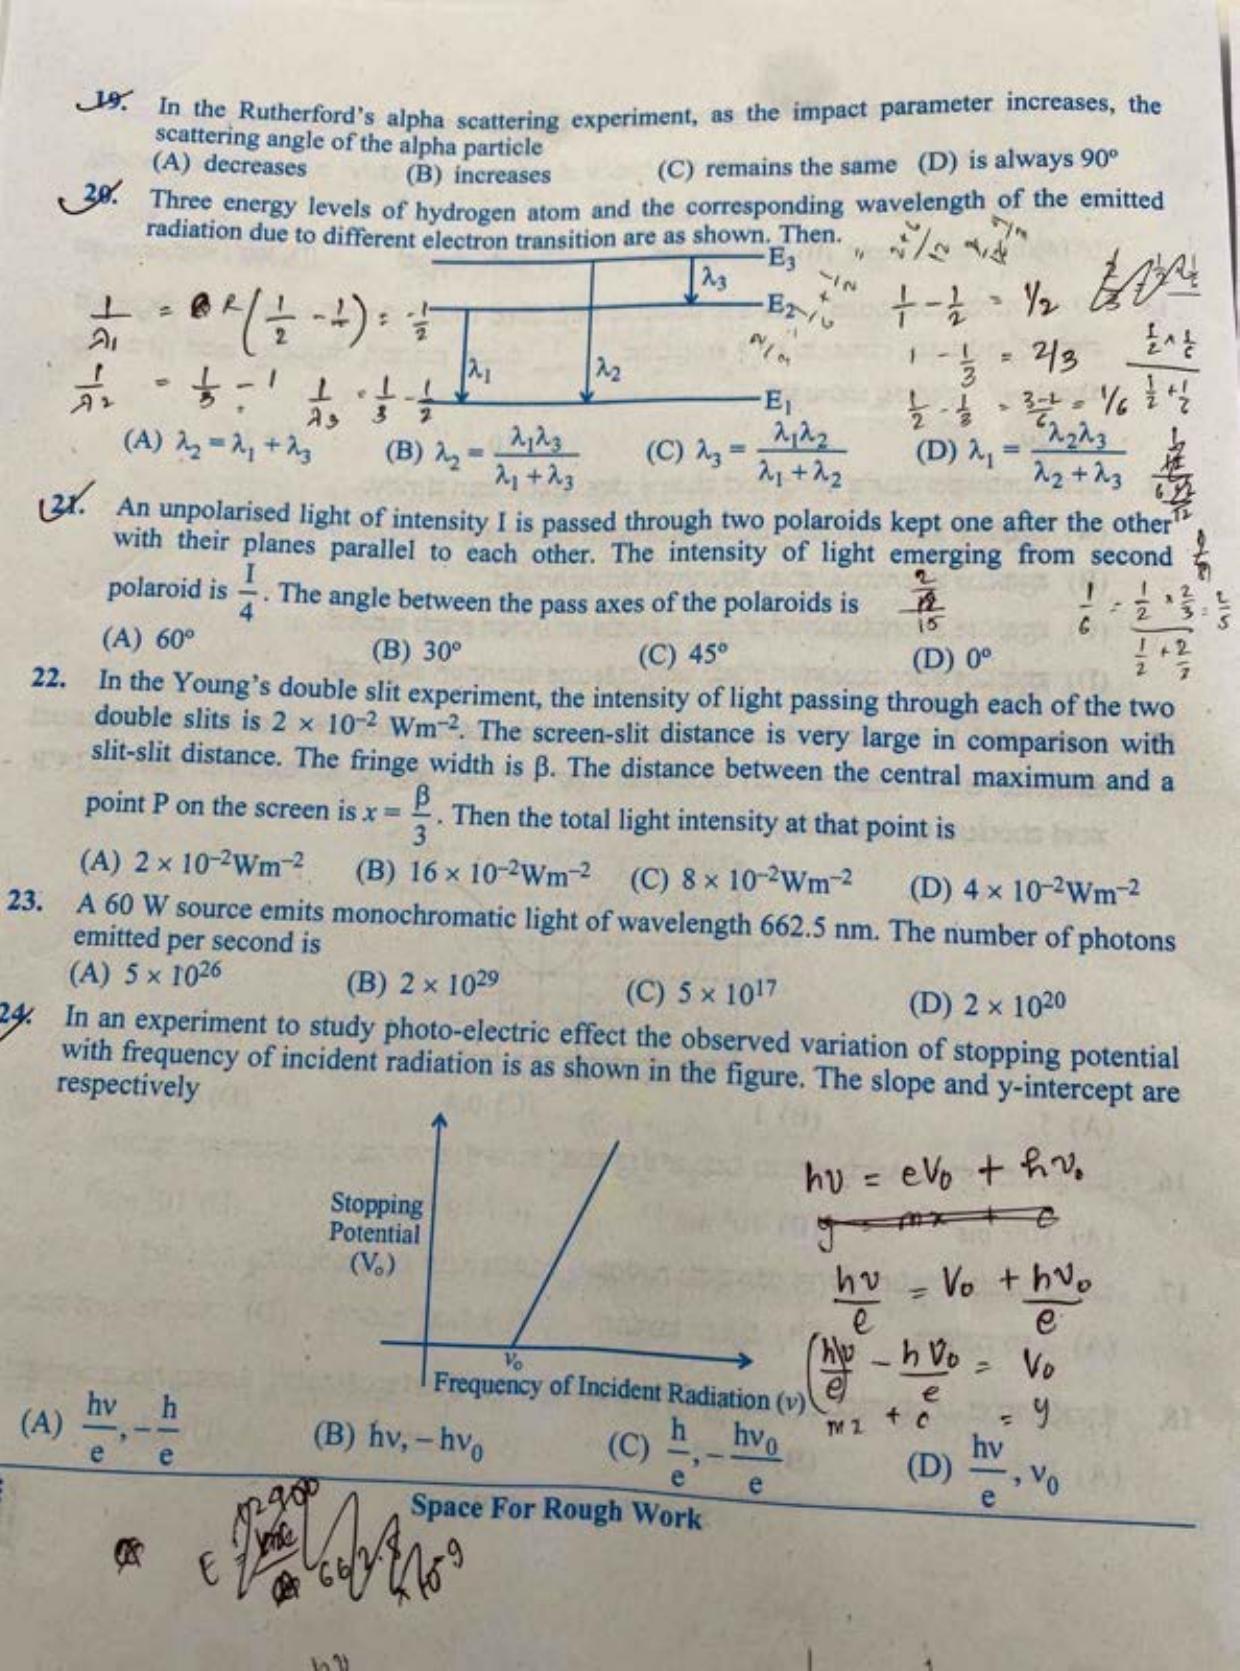 19. In the Rutherford's alpha scattering experiment, as the impact parameter increases, the
scattering angle of the alpha particle
(A) decreases (B) increases (C) remains the same (D) is always 90°
20. Three energy levels of hydrogen atom and the corresponding wavelength of the emitted
radiation due to different electron transition are as shown. Then.
E₃
λ₃
E₂
λ₁ λ₂
E₁
1/λ₁ = R(1/2 - 1/1) = -1/2
1/λ₂ = 1/3 - 1 1/λ₃ = 1/3 - 1/2
1/1 - 1/2 = 1/2
1 - 1/3 = 2/3
1/2 - 1/3 = 3-2/6 = 1/6
(A) λ₂ = λ₁ + λ₃ (B) λ₂ = λ₁λ₃/λ₁ + λ₃ (C) λ₃ = λ₁λ₂/λ₁ + λ₂ (D) λ₁ = λ₂λ₃/λ₂ + λ₃
21. An unpolarised light of intensity I is passed through two polaroids kept one after the other
with their planes parallel to each other. The intensity of light emerging from second
polaroid is I/4. The angle between the pass axes of the polaroids is
(A) 60° (B) 30° (C) 45° (D) 0°
22. In the Young's double slit experiment, the intensity of light passing through each of the two
double slits is 2 × 10⁻² Wm⁻². The screen-slit distance is very large in comparison with
slit-slit distance. The fringe width is β. The distance between the central maximum and a
point P on the screen is x = β/3. Then the total light intensity at that point is
(A) 2 × 10⁻²Wm⁻² (B) 16 × 10⁻²Wm⁻² (C) 8 × 10⁻²Wm⁻² (D) 4 × 10⁻²Wm⁻²
23. A 60 W source emits monochromatic light of wavelength 662.5 nm. The number of photons
emitted per second is
(A) 5 × 10²⁶ (B) 2 × 10²⁹ (C) 5 × 10¹⁷ (D) 2 × 10²⁰
24. In an experiment to study photo-electric effect the observed variation of stopping potential
with frequency of incident radiation is as shown in the figure. The slope and y-intercept are
respectively
Stopping
Potential
(V₀)
ν₀
Frequency of Incident Radiation (ν)
hν = eV₀ + hν₀
y = mx + c
hν/e = V₀ + hν₀/e
(h/e)ν - hν₀/e = V₀
mx + c = y
(A) hν/e, -h/e (B) hν, -hν₀ (C) h/e, -hν₀/e (D) hν/e, ν₀
Space For Rough Work